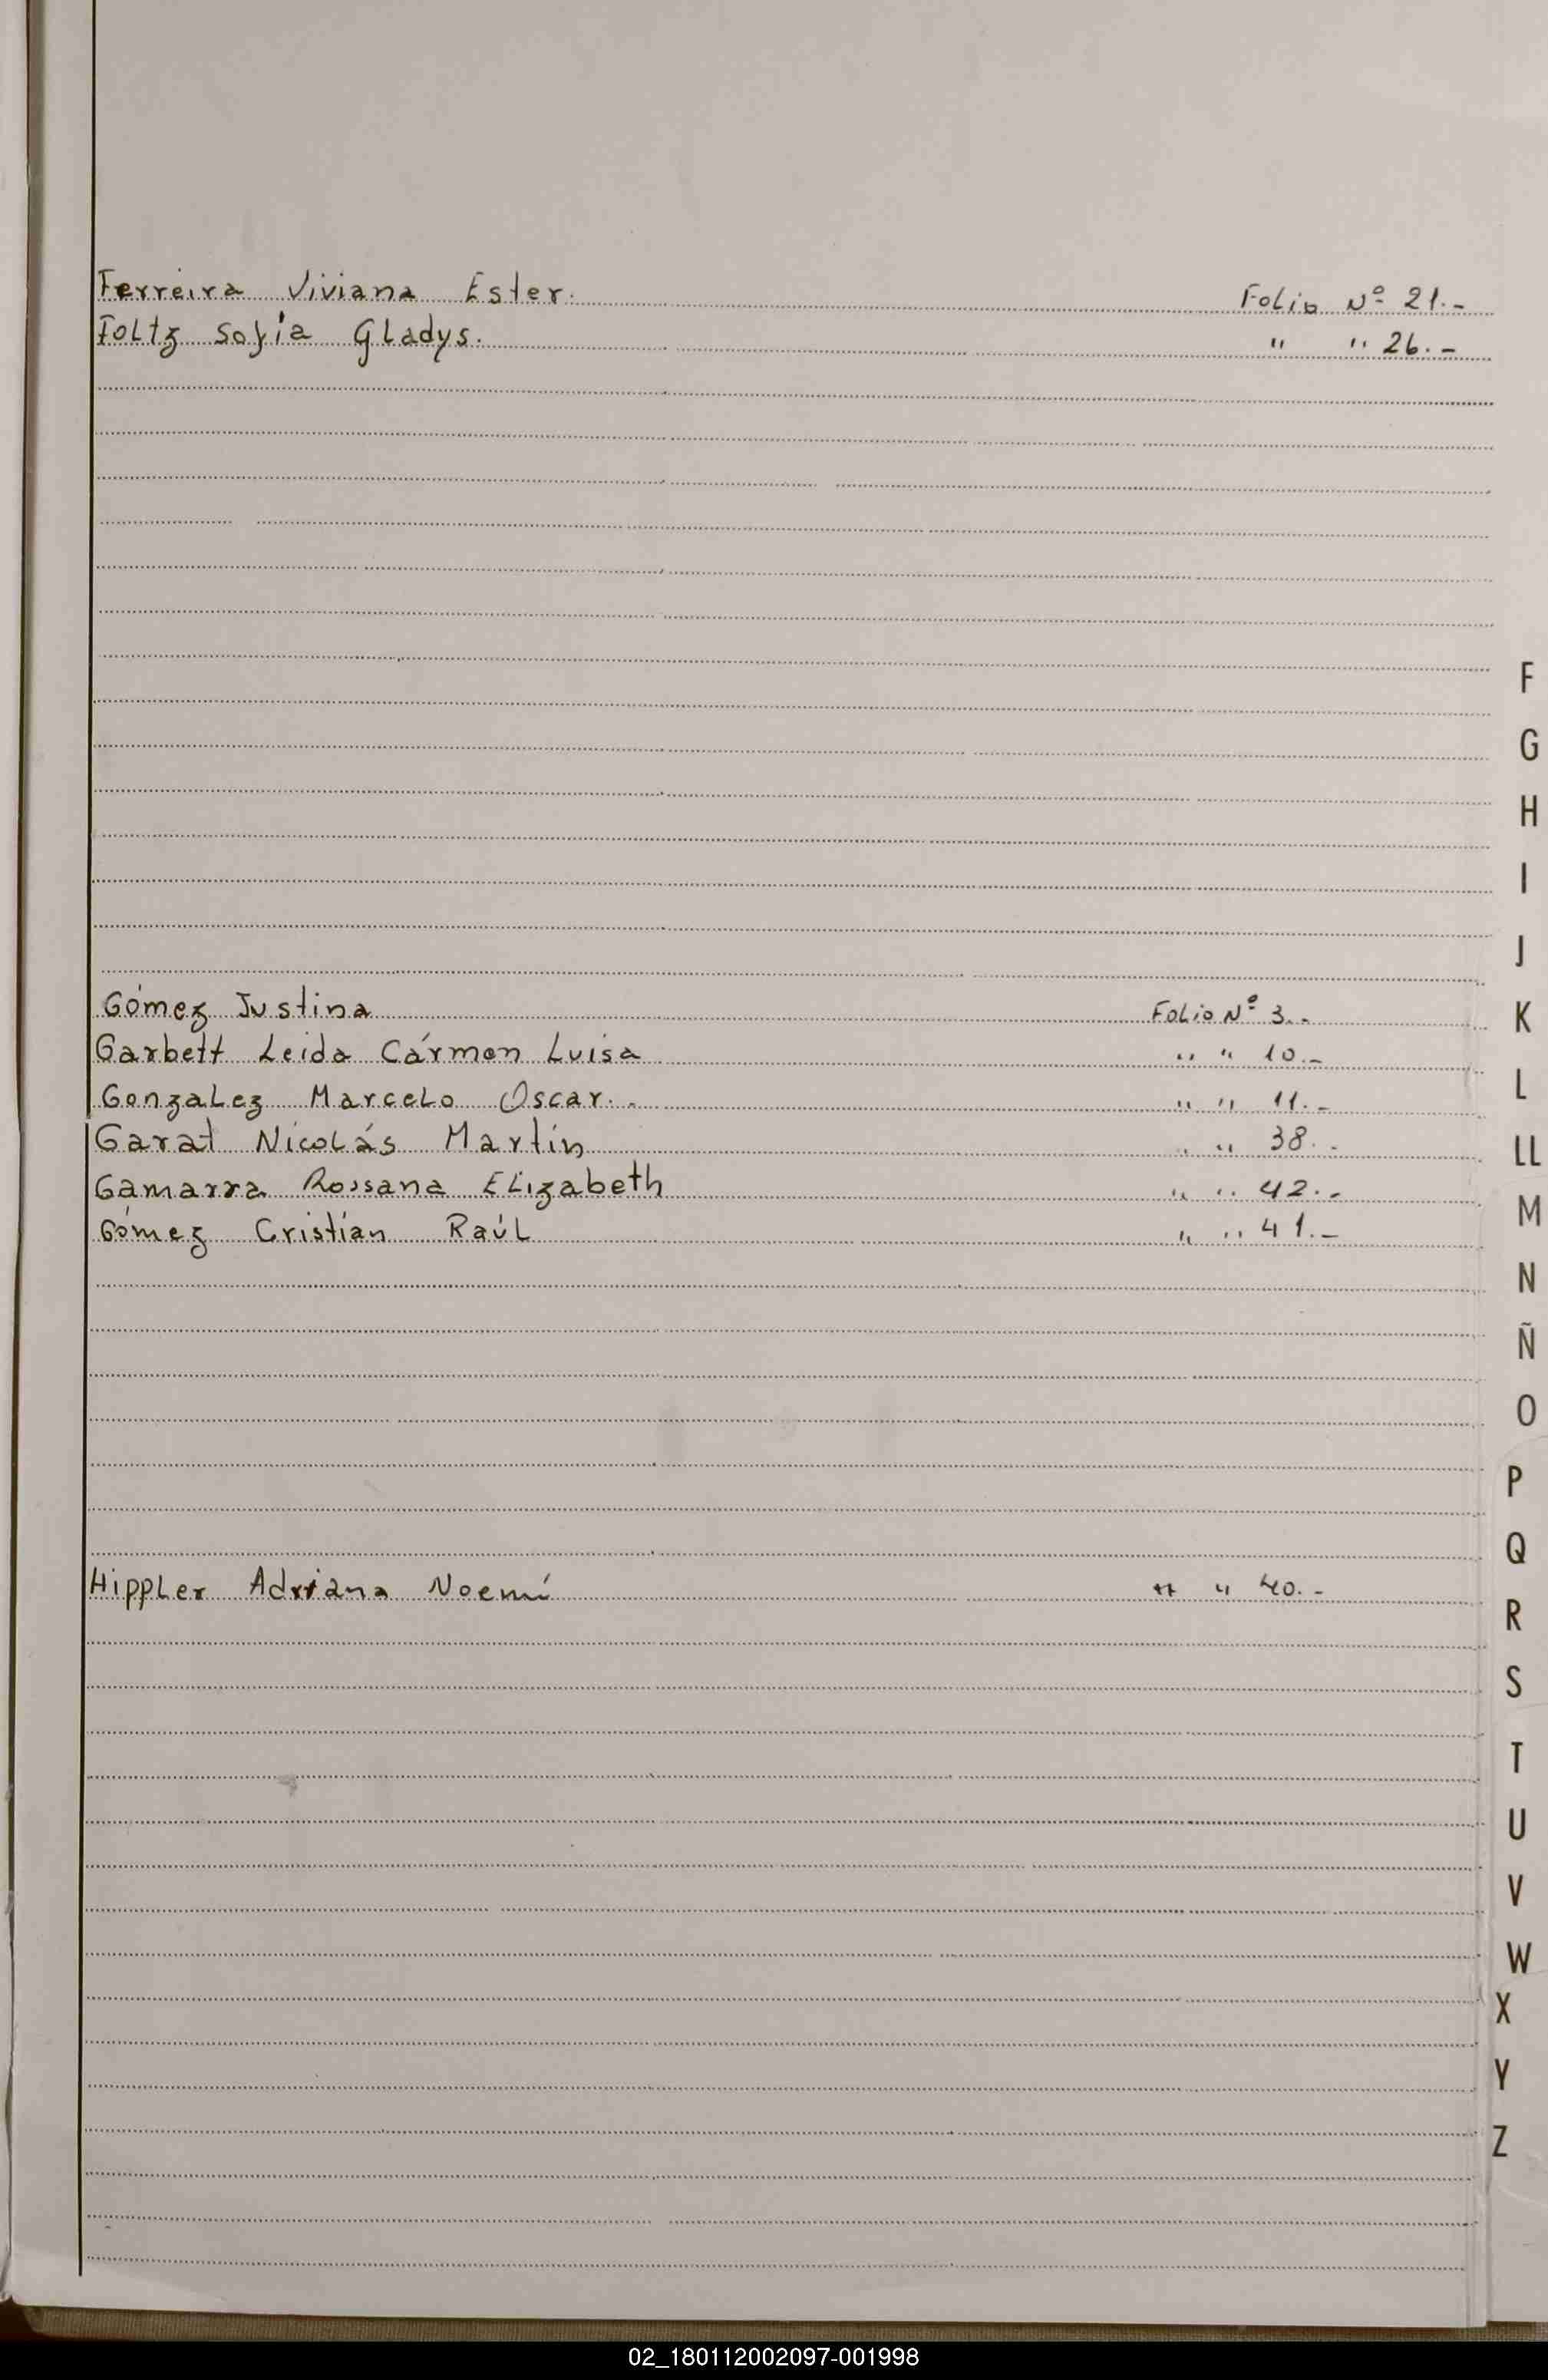 Ferreira Viviana Ester. Folio Nº 21.-
Foltz Sofia Gladys. " " 26.-
Gómez Justina Folio Nº 3.-
Garbett Leida Cármen Luisa " " 10.-
Gonzalez Marcelo Oscar.- " " 11.-
Garat Nicolás Martín " " 38.-
Gamarra Rossana Elizabeth " " 42.-
Gómez Cristian Raúl " " 41.-
Hippler Adriana Noemí " " 40.-
F
G
H
I
J
K
L
LL
M
N
Ñ
O
P
Q
R
S
T
U
V
W
X
Y
Z
02_180112002097-001998